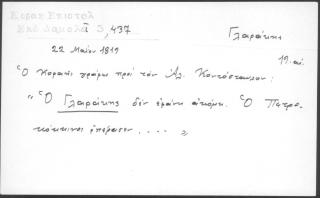 Κοραη Επιστολ
Εκδ Δαμαλα Ι 3, 437
Γλαράκης
22 Μαΐου 1819
19. αι.
Ὁ Κοραῆς γράφει πρὸς τὸν Ἀλ. Κοντόσταυλον:
"Ὁ Γλαράκης δὲν ἐφάνη ἀκόμη. Ὁ Πετρο-
κόκκινος ἐπέρασεν .... »